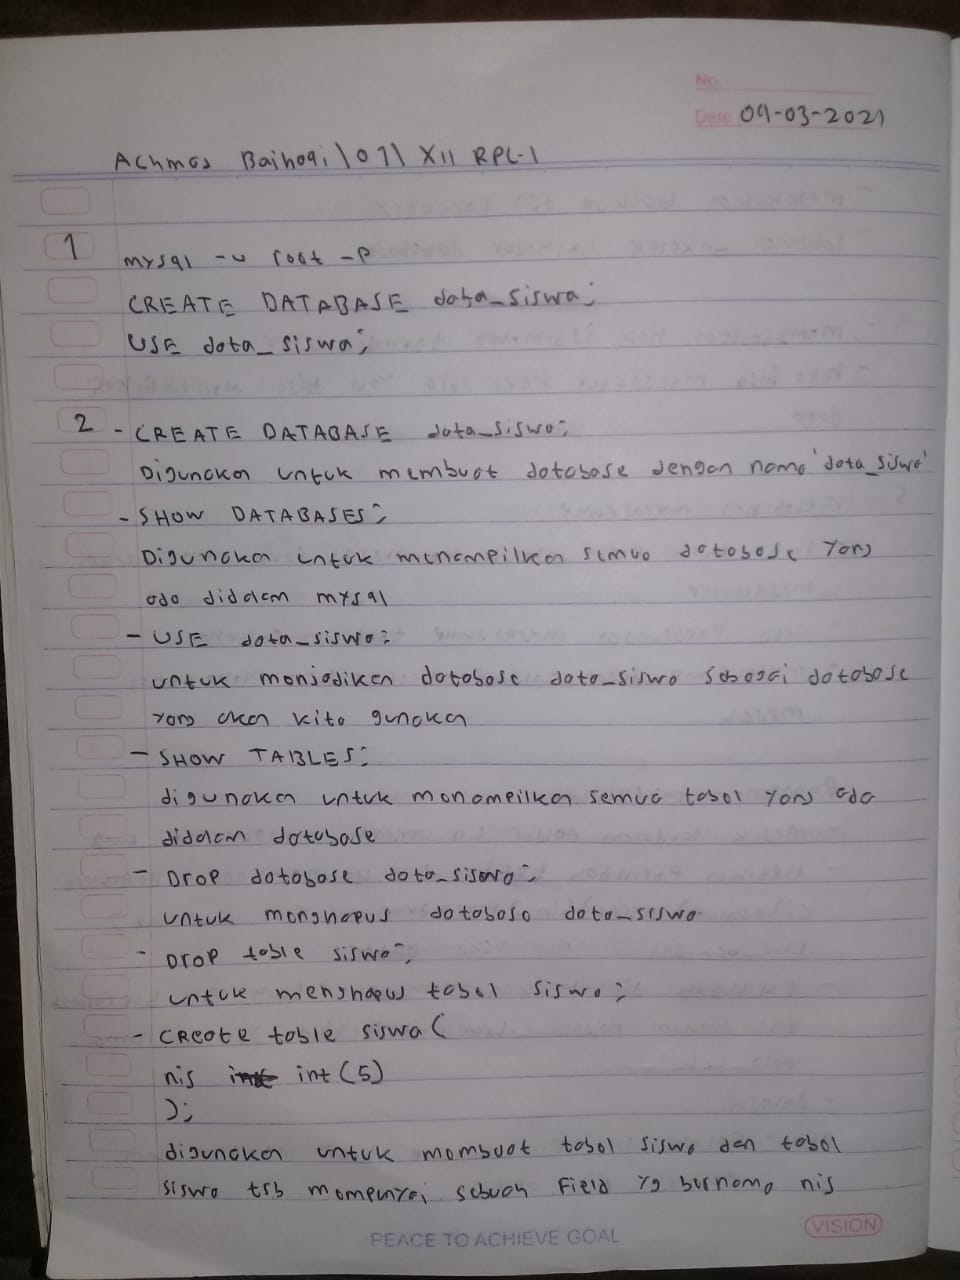 No.
Date 09-03-2021
Achmad Baihaqi \ 07 \ XII RPL-1
1 mysql -u root -p
CREATE DATABASE data_siswa;
USE data_siswa;
2 - CREATE DATABASE data_siswa;
Digunakan untuk membuat database dengan nama 'data_siswa'
- SHOW DATABASES;
Digunakan untuk menampilkan semua database yang
ada didalam mysql
- USE data_siswa;
untuk menjadikan database data_siswa sebagai database
yang akan kita gunakan
- SHOW TABLES;
digunakan untuk menampilkan semua tabel yang ada
didalam database
- Drop database data_siswa;
untuk menghapus database data_siswa
- Drop table siswa;
untuk menghapus tabel siswa;
- Create table siswa (
nis int (5)
);
digunakan untuk membuat tabel siswa dan tabel
siswa tsb mempunyai sebuah field yg bernama nis
VISION
PEACE TO ACHIEVE GOAL